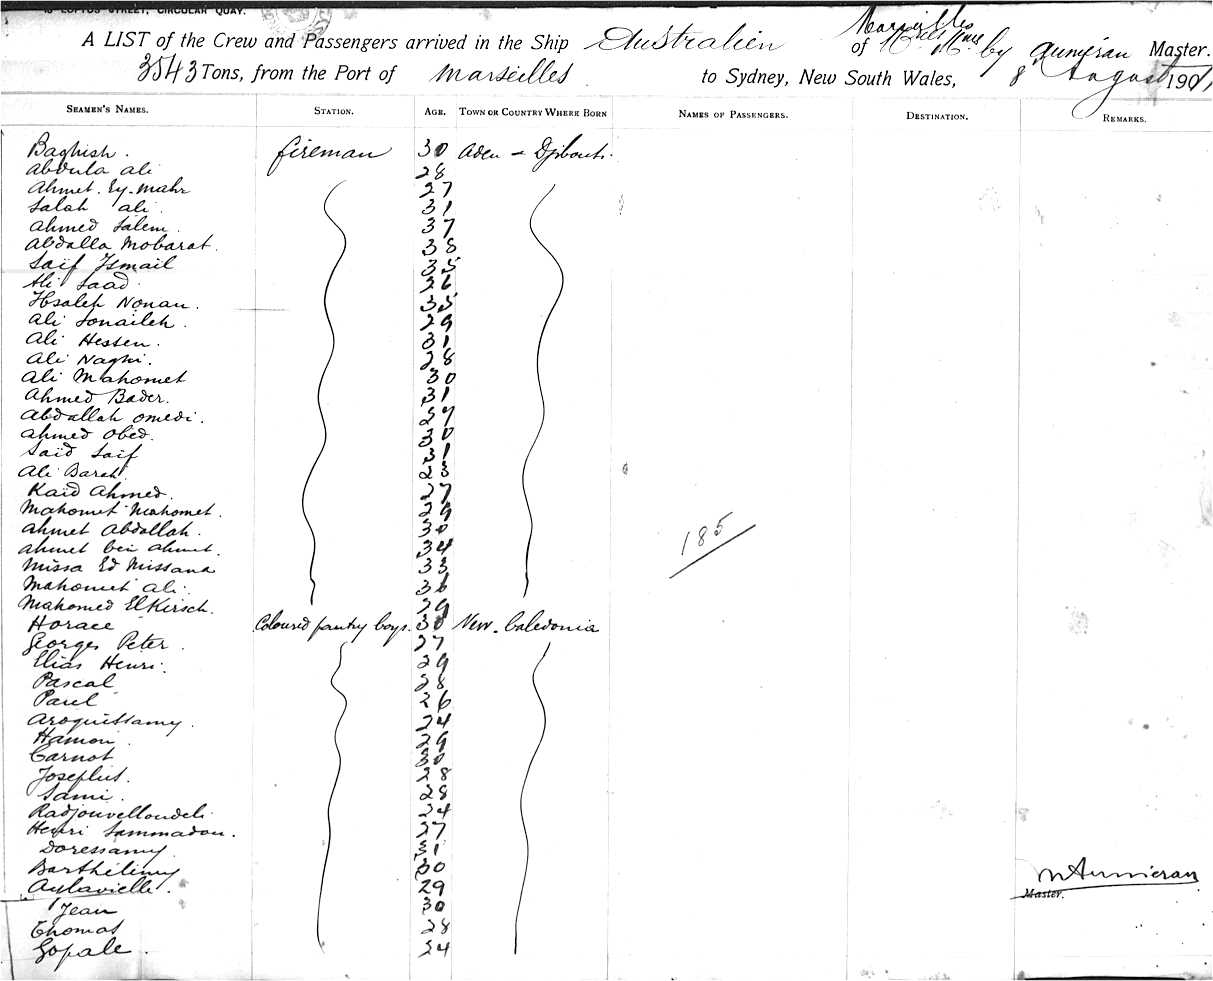 LOFTUS STREET, CIRCULAR QUAY.
A LIST of the Crew and Passengers arrived in the Ship Australien of Marseilles by Aumeran Master.
3543 Tons, from the Port of Marseilles to Sydney, New South Wales, 8 August 190
SEAMEN'S NAMES. STATION. AGE. TOWN OR COUNTRY WHERE BORN NAMES OF PASSENGERS. DESTINATION. REMARKS.
Baghish. fireman 30 Aden - Djibouti.
Abdula Ali 28
Ahmet. Ey. Mahr 27
Salah Ali. 31
Ahmed Salem. 37
Abdalla Mobarat. 38
Saif Ismail 35
Ali Saad. 26
Hsaleh Nonan. 35
Ali Sonaileh. 29
Ali Hessen. 31
Ali Naghi. 28
Ali Mahomet 30
Ahmed Bader. 31
Abdallah Omedi. 27
Ahmed Obed. 30
Saïd Saif 31
Ali Barah. 23
Kaid Ahmed. 27
Mahomet Mahomet. 29
Ahmet Abdallah. 30
Ahmet ben Ahmet. 34
Missa Ed Missana 33
Mahomet Ali. 36
Mahomed El Kirsch. 29
Horace Coloured pantry boys. 30 New. Caledonia
Georges Peter. 27
Elias Henri. 29
Pascal 28
Paul 26
Aroquissamy. 24
Hamon. 29
Carnot 30
Josephus. 28
Sami. 28
Radjouvelloudeli 24
Henri Sammadou. 27
Doressamy. 31
Barthélimy 30
Aylavielle. 29
Jean 30
Thomas 28
Gopale. 24
185
N Aumeran
Master.